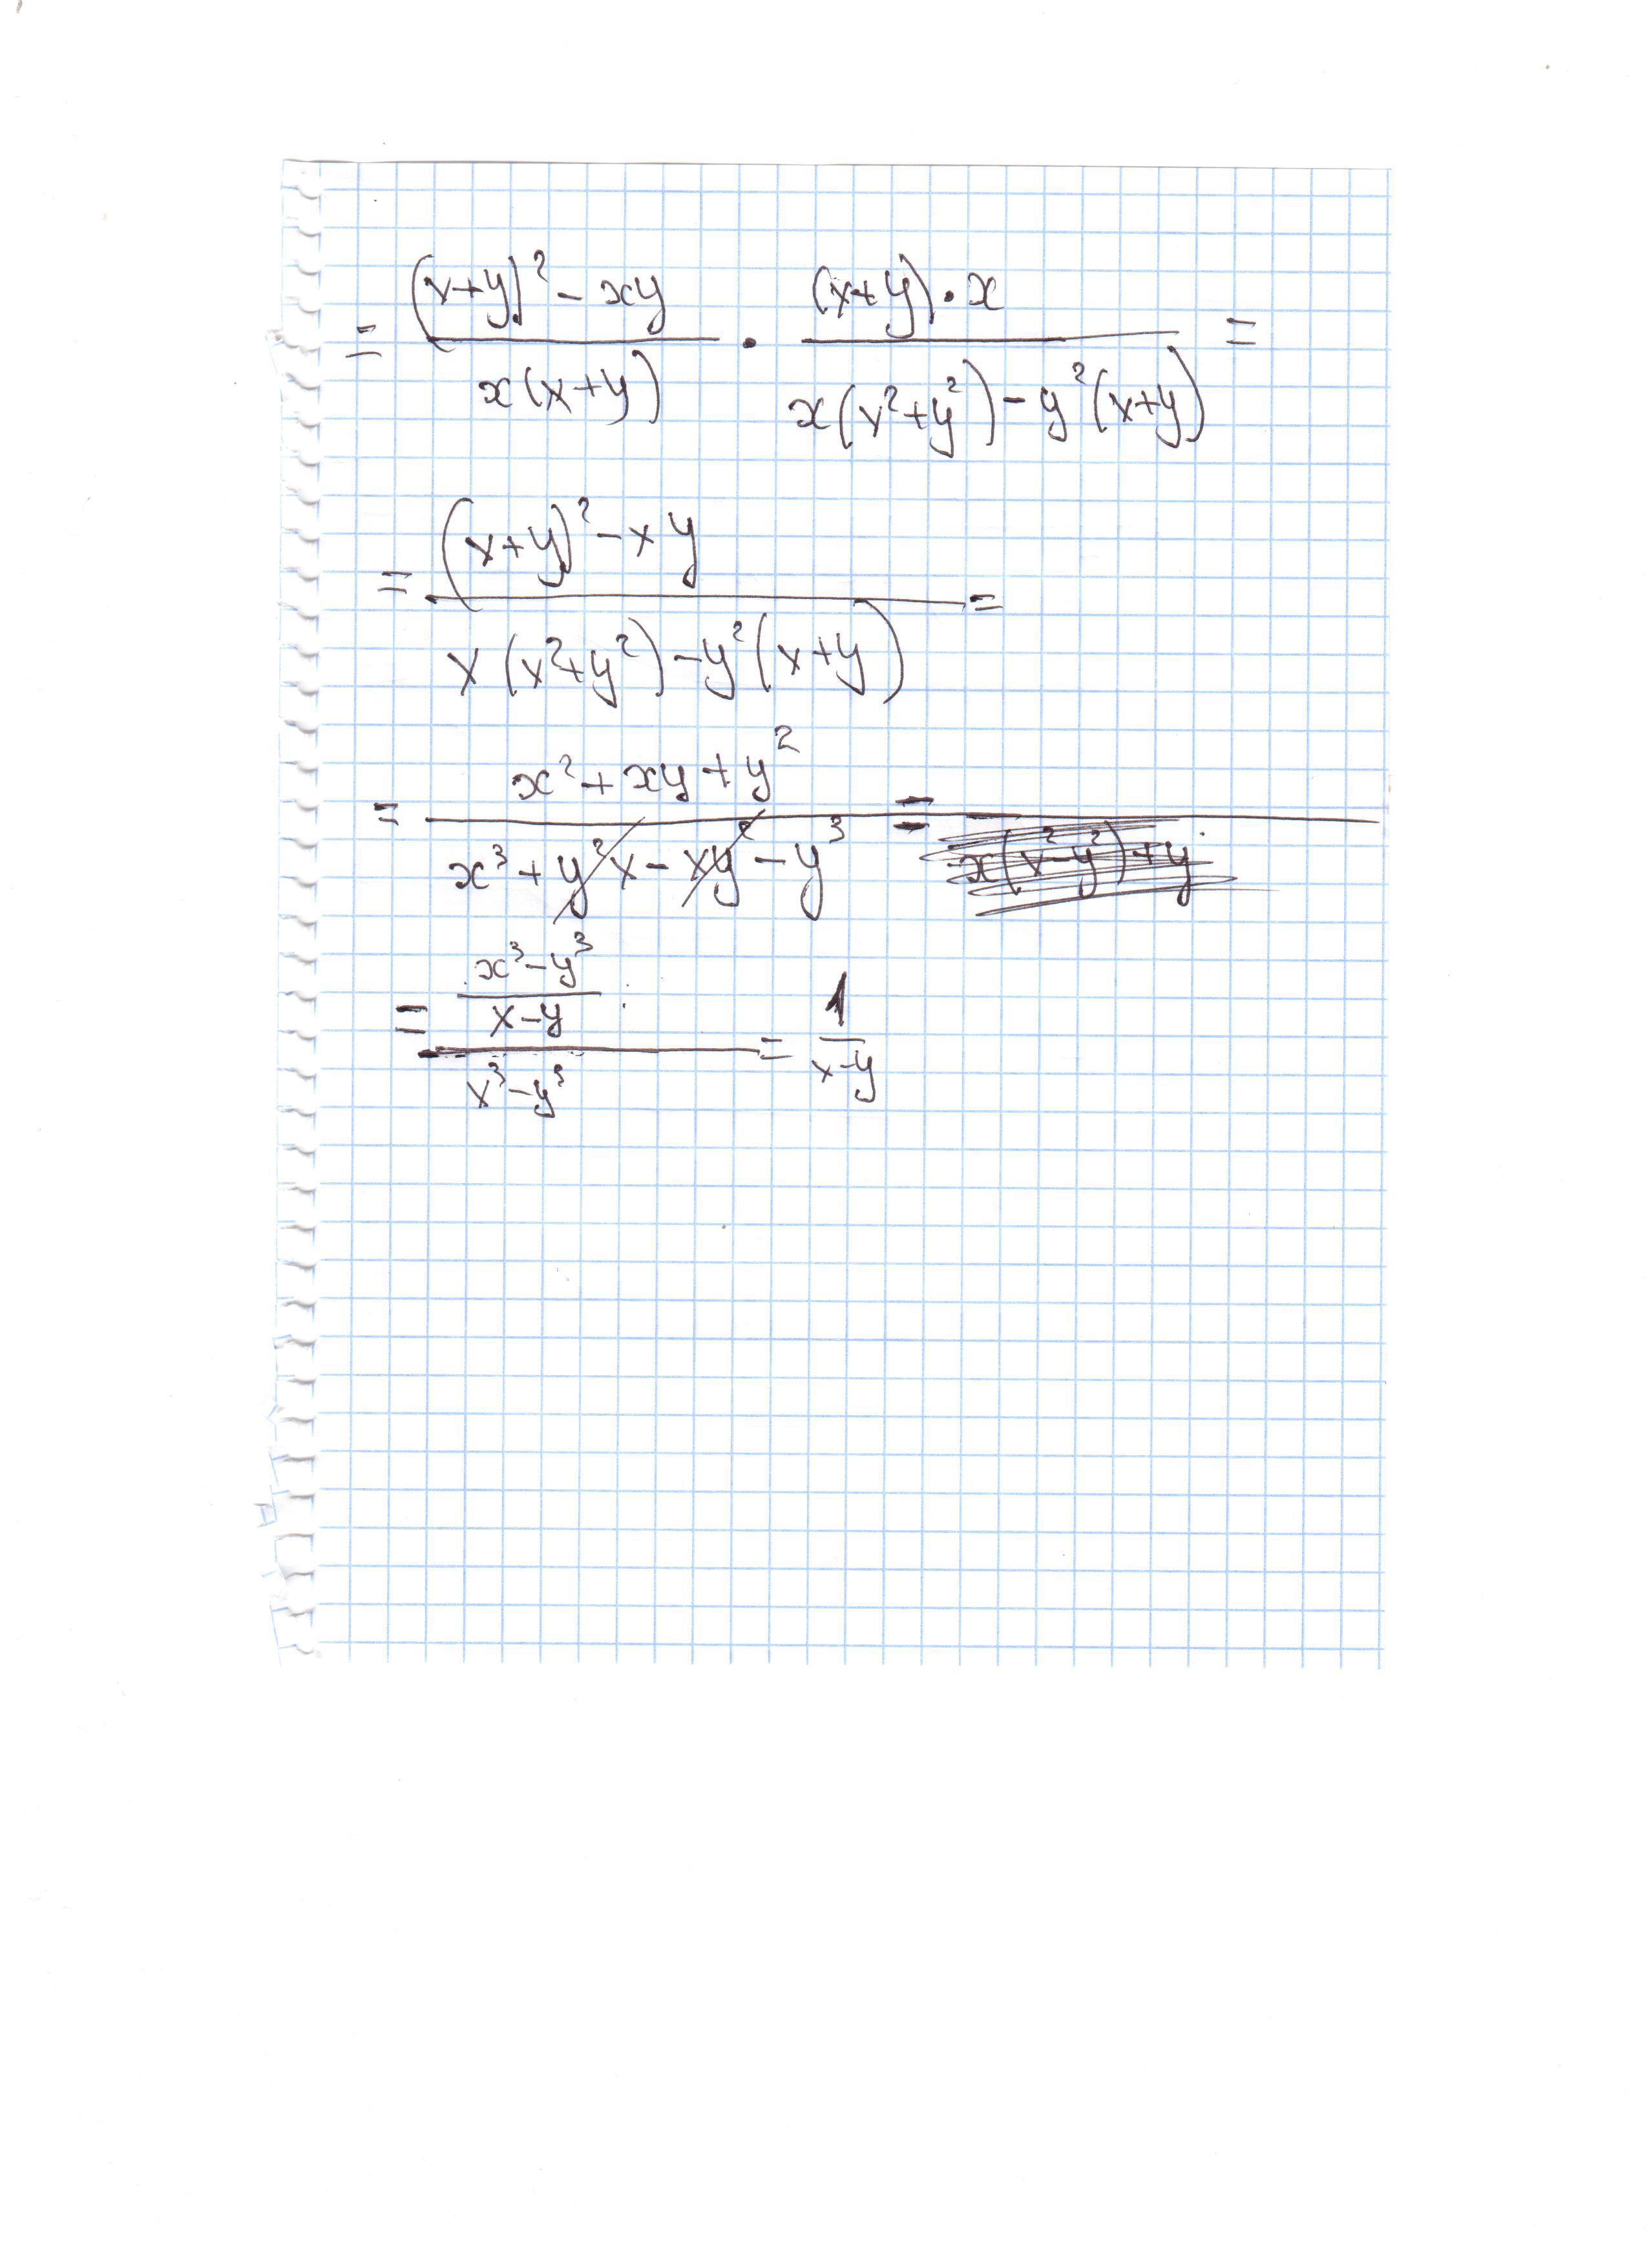 = ((x+y)² - xy)/(x(x+y)) · ((x+y)·x)/(x(x²+y²) - y²(x+y)) =
= ((x+y)² - xy)/(x(x²+y²) - y²(x+y)) =
= (x² + xy + y²)/(x³ + y²x - xy² - y³) = /(x(x²-y²)+y
= ((x³-y³)/(x-y))/(x³-y³) = 1/(x-y)